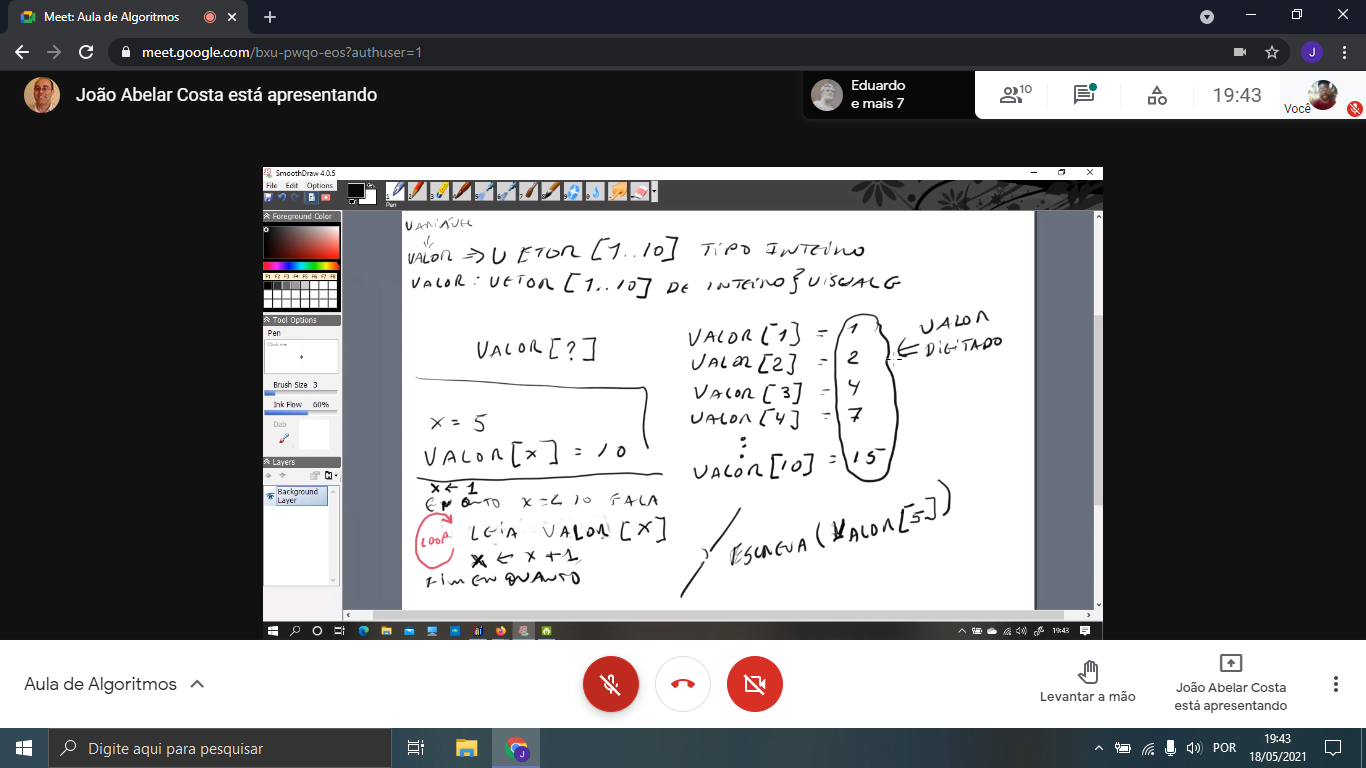 Meet: Aula de Algoritmos
meet.google.com/bxu-pwqo-eos?authuser=1
J
João Abelar Costa está apresentando
Eduardo
e mais 7
10
19:43
Você
SmoothDraw 4.0.5
File Edit Options
Pen
Foreground Color
F1 F2 F3 F4 F5 F6 F7 F8
Tool Options
Pen
Click me
Brush Size 3
Ink Flow 60%
Dab
Layers
Background
Layer
VARIÁVEL
VALOR ⇒ VETOR [1..10] TIPO INTEIRO
VALOR: VETOR [1..10] DE INTEIRO } VISUALG
VALOR[?]
x = 5
VALOR[x] = 10
x ← 1
x =< 10
LOOP
LEIA VALOR [X]
X ← x + 1
FIMENQUANTO
VALOR[1] = 1
VALOR[2] = 2
VALOR[3] = 4
VALOR[4] = 7
VALOR[10] = 15
← VALOR
DIGITADO
ESCREVA (VALOR[5])
19:43
Aula de Algoritmos
Levantar a mão
João Abelar Costa
está apresentando
Digite aqui para pesquisar
POR
19:43
18/05/2021